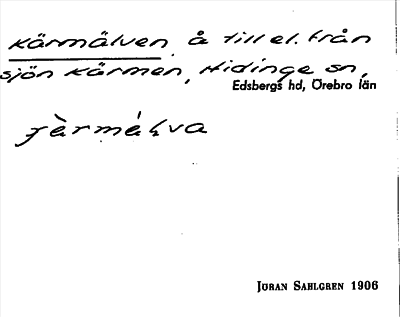 Kärmälven å till el. från
sjön Kärmen, Hidinge sn,
Edsbergs hd, Örebro län
JÖRAN SAHLGREN 1906